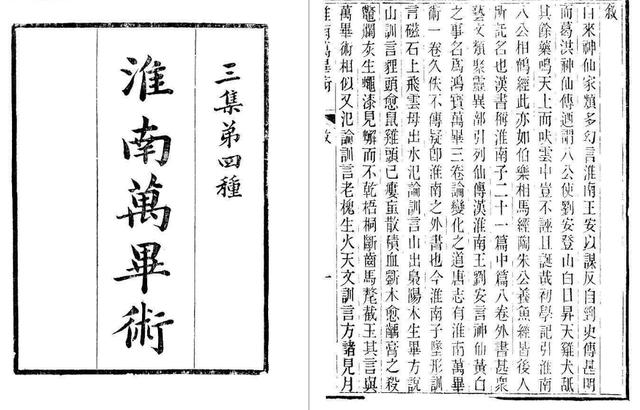 三集第四種
淮南萬畢術
敘
自來神仙家類多幻言淮南王安以謀反自剄史傳甚明
而葛洪神仙傳迺謂八公使劉安登山白日昇天雞犬舐
其餘藥鳴天上而吠雲中豈不誣且誕哉初學記引淮南
八公相鶴經此亦如伯樂相馬經陶朱公養魚經皆後人
所託名也漢書稱淮南子二十一篇中篇八卷外書甚衆
藝文類聚靈異部引列仙傳漢淮南王劉安言神仙黃白
之事名爲鴻寶萬畢三卷論變化之道唐志有淮南萬畢
術一卷久佚不傳疑即淮南之外書也今淮南子墜形訓
言磁石上飛雲母出水氾論訓言山出梟陽木生畢方說
山訓言貍頭愈鼠雞頭已瘻蝱散積血斲木愈齲膏之殺
鼈爛灰生蠅漆見蟹而不乾梧桐斷齒馬氂截玉其言與
萬畢術相似又氾論訓言老槐生火天文訓言方諸見月
淮南萬畢術 敘 一